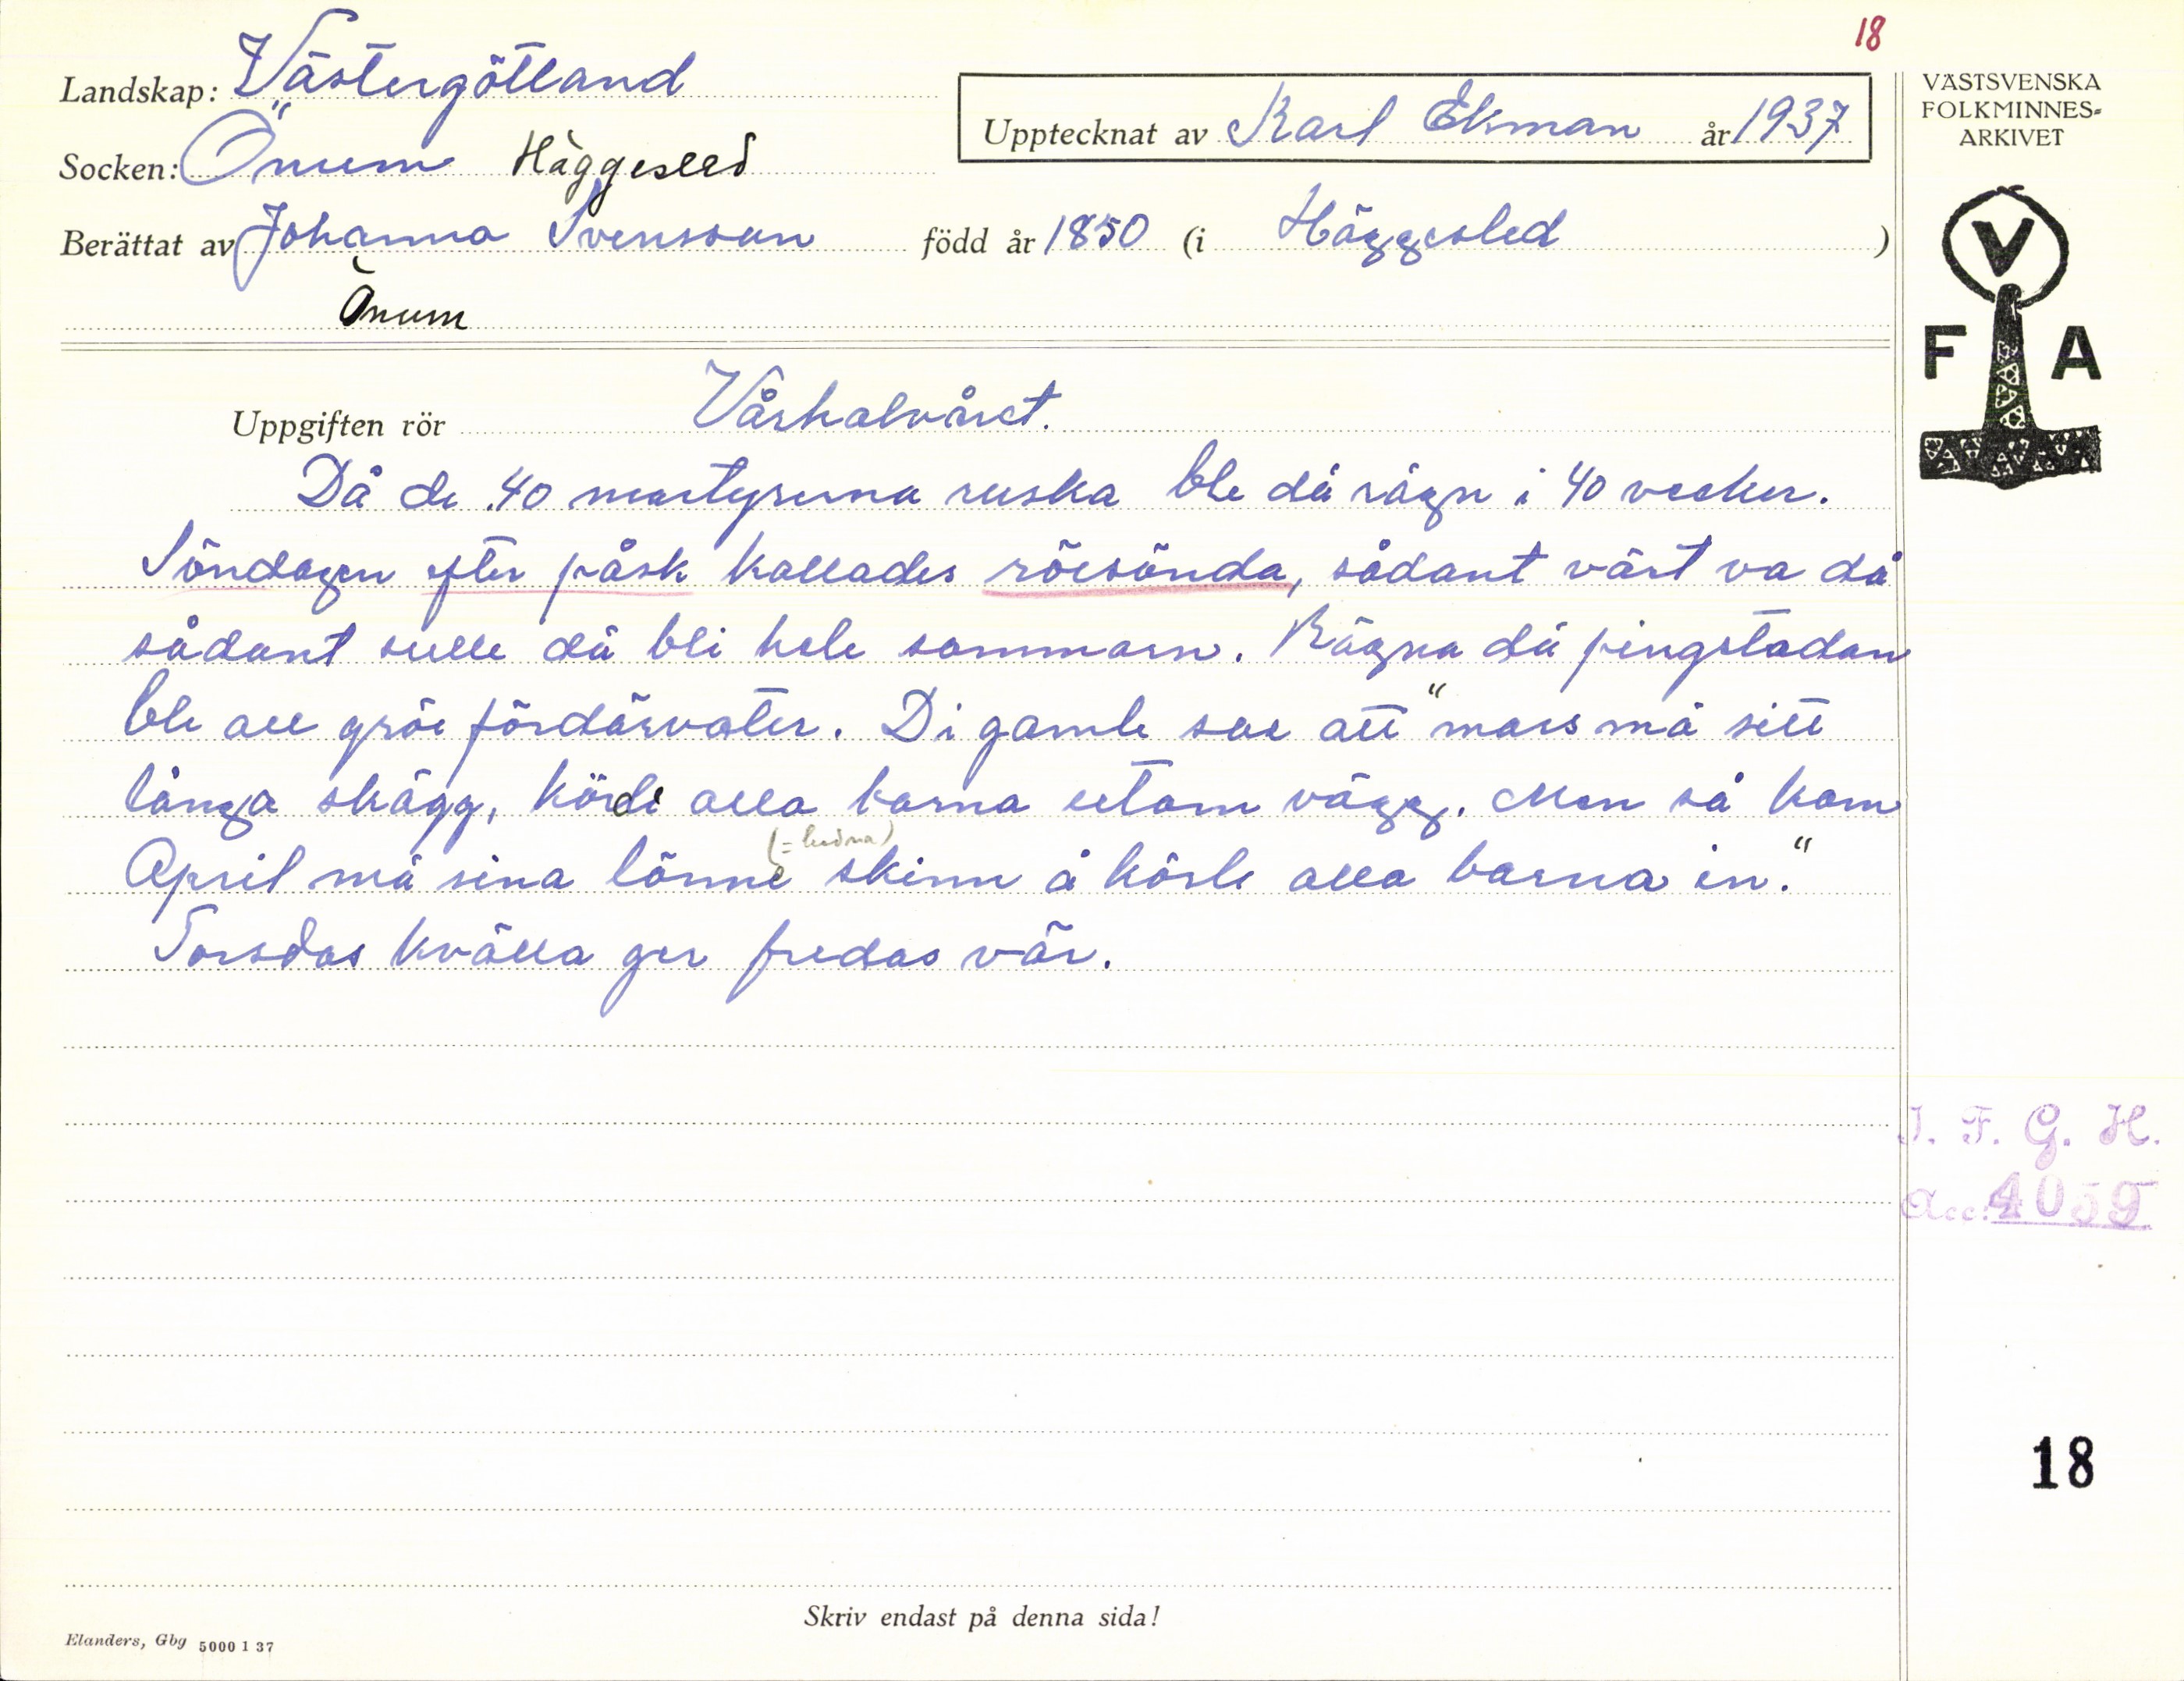 18
Landskap: Västergötland
Socken: Önum Häggesled
Upptecknat av Karl Ekman år 1937
Berättat av Johanna Svensson född år 1850 (i Häggesled)
Önum
VÄSTSVENSKA
FOLKMINNES-
ARKIVET
V
F A
Uppgiften rör Vårhalvåret.
Då de 40 martyrerna ruska ble dä rägn i 40 vecker.
Söndagen efter påsk kallades röesönda, sådant värt va då
sådant sulle dä bli hele sommarn. Rägna dä pingstadan
ble all gröe fördärvater. Di gamle sae att "mars mä sitt
långa skägg, körde alla barna utom vägg. Men så kom
(= ludna)
April mä sina lönne skinn å körle alla barna in."
Torsdas kvälla ger fredas vär.
I. F. G. H.
Acc: 4059
18
Skriv endast på denna sida!
Elanders, Gbg 5000 1 37